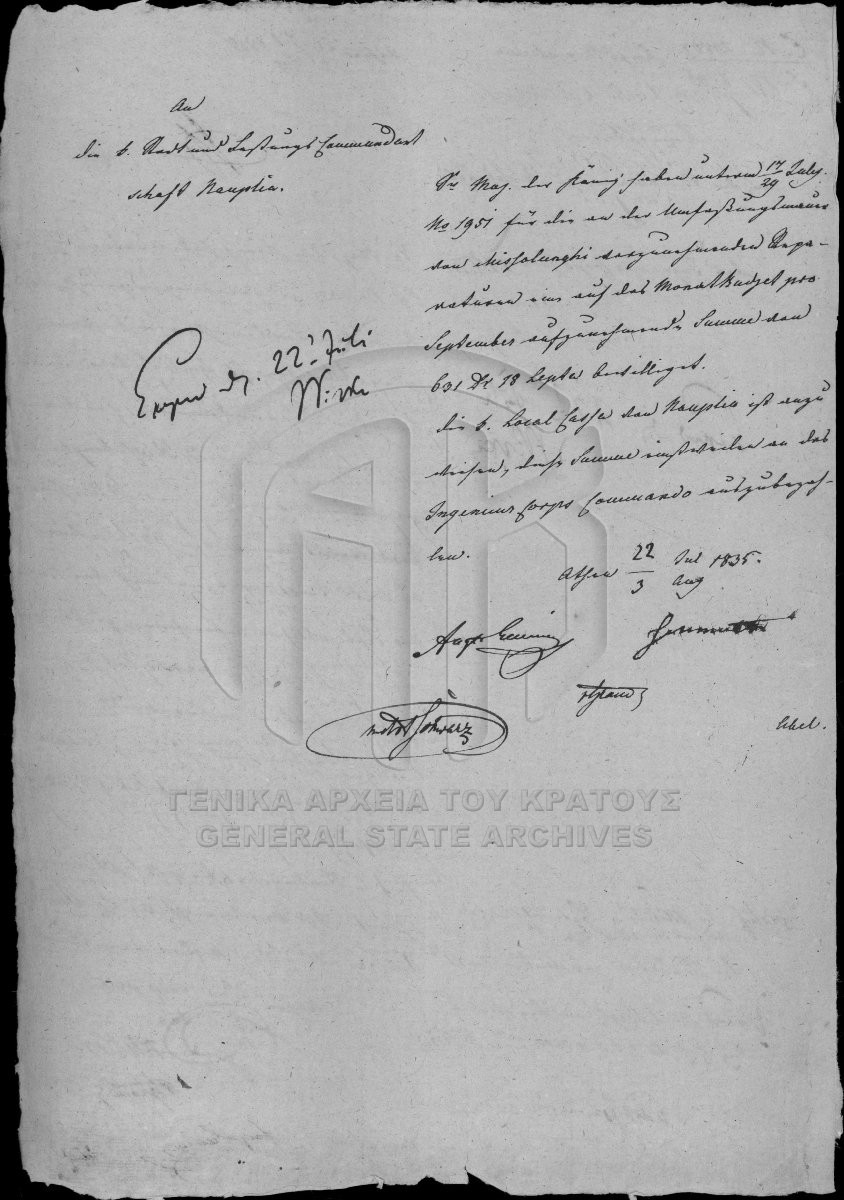 An
die k. Stadt und Festungs Commandant
schaft Nauplia.
Se Maj. der König haben unterm 17/29 July.
No 1951 für die an der Umfaßungsmauer
von Missolunghi vorzunehmenden Repa-
raturen eine auf das Monat Budget pro
September aufzunehmende Summe von
631 Dr 18 Lepta bewilliget.
die k. Local Cassa von Nauplia ist anzu
weisen, diese Summe einstweilen an das
Ingenieur Corps Commando auszubezah-
len.
Athen 22/3 Jul/Aug 1835.
22. Juli
Schwarz
ΓΕΝΙΚΑ ΑΡΧΕΙΑ ΤΟΥ ΚΡΑΤΟΥΣ
GENERAL STATE ARCHIVES